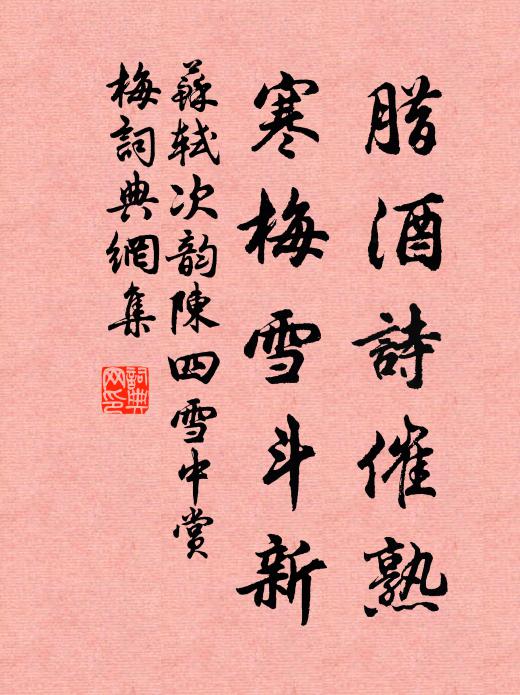 腊酒詩催熟
寒梅雪斗新
蘇軾次韵陳四雪中賞
梅詞典網集
詞典网印